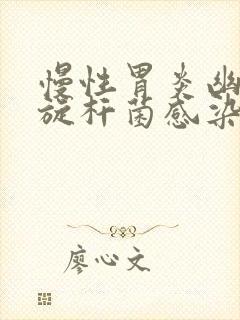 慢性胃炎幽
旋杆菌感染
廖心文